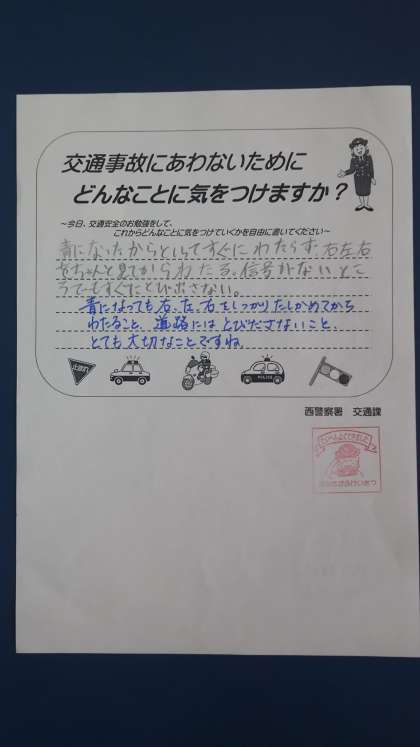 交通事故にあわないために
どんなことに気をつけますか？
～今日、交通安全のお勉強をして、
これからどんなことに気をつけていくかを自由に書いてください～
青になったからといってすぐにわたらず、右左右
をちゃんと見てからわたる。信号がないとこ
ろでもすぐにとび出さない。
青になっても右、左、右をしっかりたしかめてから
わたること、道路にはとびださないこと、
とても大切なことですね。
止まれ
POLICE
西警察署 交通課
たいへんよくできました